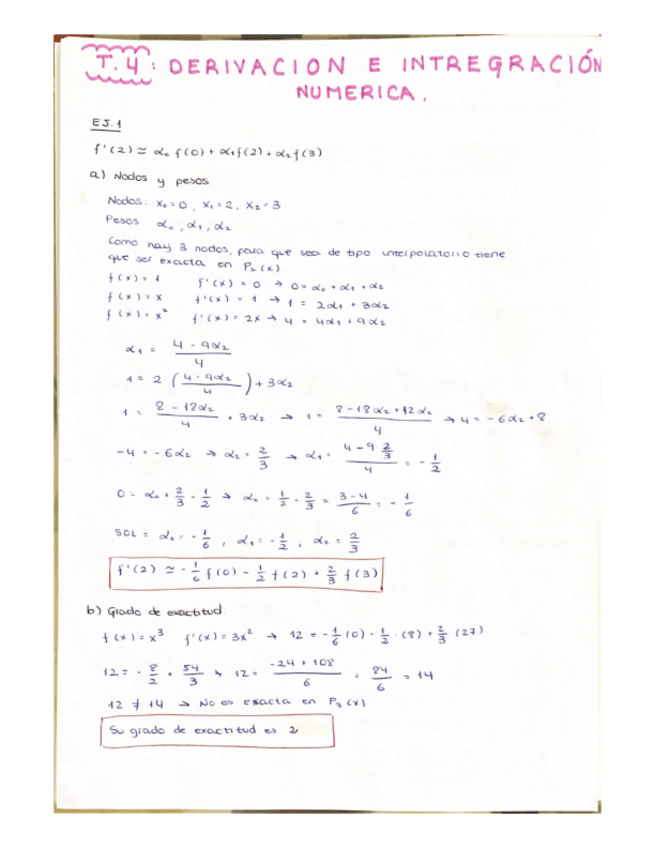 T.4: DERIVACION E INTREGRACIÓN
NUMERICA.
EJ.1
f'(2) ≃ α₀ f(0) + α₁f(2) + α₂ f(3)
a) Nodos y pesos
Nodos: x₀=0, x₁=2, x₂=3
Pesos α₀, α₁, α₂
Como hay 3 nodos, para que sea de tipo interpolatorio tiene
que ser exacta en P₂(x)
f(x)=1 f'(x)=0 → 0=α₀+α₁+α₂
f(x)=x f'(x)=1 → 1=2α₁+3α₂
f(x)=x² f'(x)=2x → 4=4α₁+9α₂
α₁ = (4-9α₂)/4
1 = 2 ((4-9α₂)/4) + 3α₂
1 = (8-18α₂)/4 + 3α₂ → 1 = (8-18α₂+12α₂)/4 → 4 = -6α₂+8
-4 = -6α₂ → α₂ = 2/3 → α₁ = (4-9 2/3)/4 = -1/2
0 = α₀ + 2/3 - 1/2 → α₀ = 1/2 - 2/3 = (3-4)/6 = -1/6
SOL = α₀ = -1/6, α₁ = -1/2, α₂ = 2/3
f'(2) ≃ -1/6 f(0) - 1/2 f(2) + 2/3 f(3)
b) Grado de exactitud.
f(x)=x³ f'(x)=3x² → 12 = -1/6 (0) - 1/2 · (8) + 2/3 (27)
12 = -8/2 + 54/3 → 12 = (-24+108)/6 = 84/6 = 14
12 ≠ 14 → No es exacta en P₃(x)
Su grado de exactitud es 2